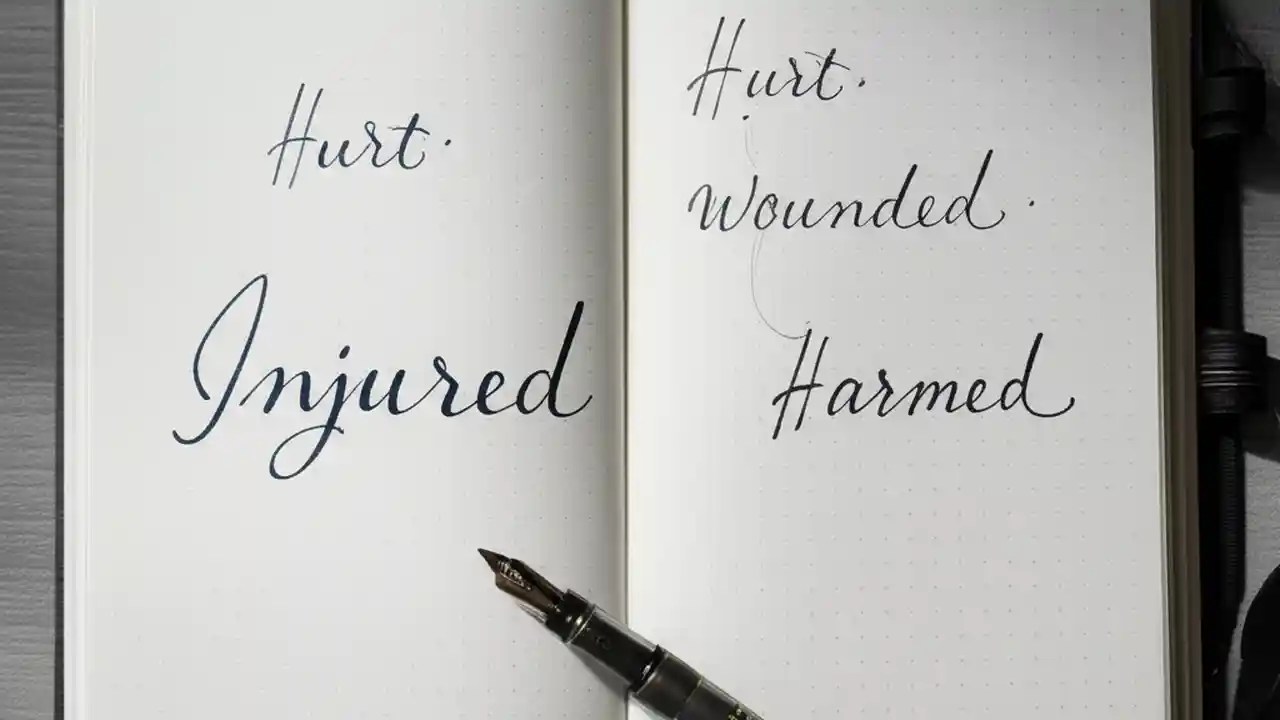 Hurt.
Injured
Hurt.
Wounded.
Harmed